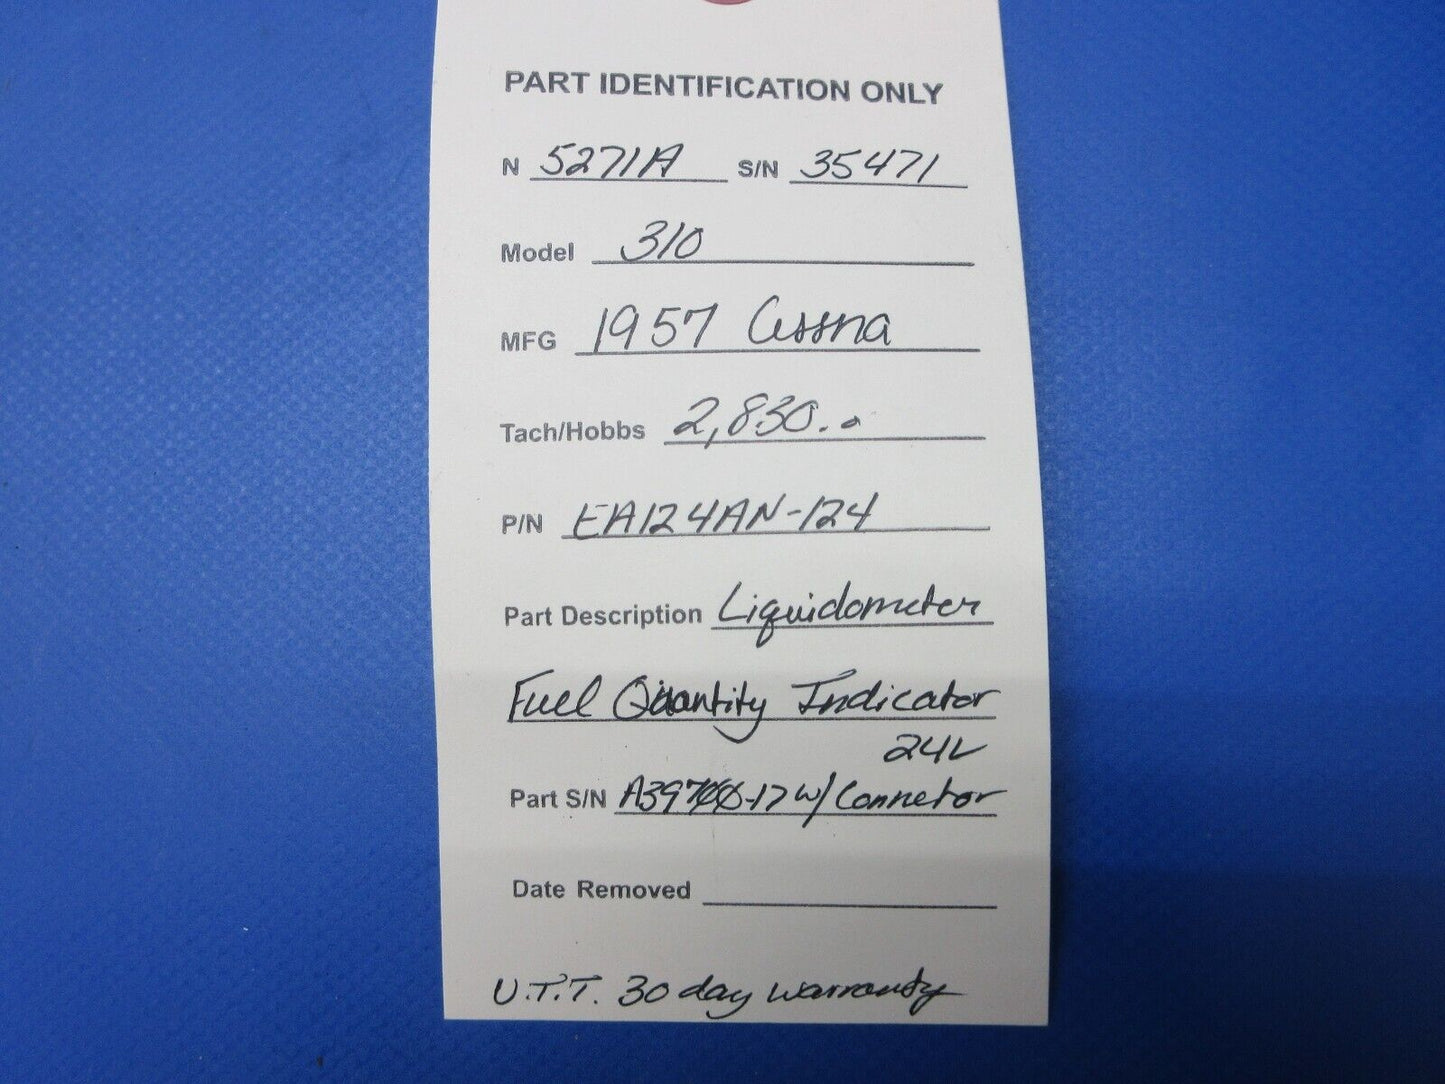 PART IDENTIFICATION ONLY
N 5271A S/N 35471
Model 310
MFG 1957 Cessna
Tach/Hobbs 2,830.0
P/N EA124AN-124
Part Description Liquidometer
Fuel Quantity Indicator
24V
Part S/N A39700-17 w/ Connetor
Date Removed
U.T.T. 30 day warranty